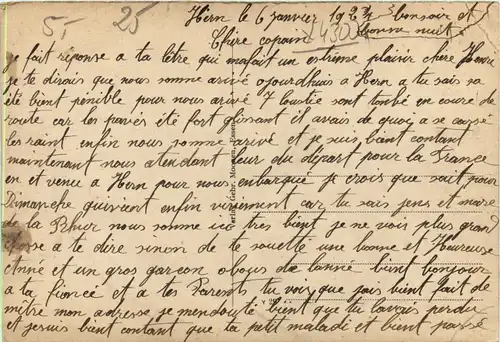 5- 25
Hern le 6 janvier 1924 bonsoir et
Chère copain 14303 bonne nuit
je fait réponse a ta létre qui mafait un estrème plaisir chère Henri
je te dirais que nous somme arrivé ojourdhuis a Hern a tu sais sa
été bient pénible pour nous arivé 7 sont tonbé en courẽ de
route car les pavés été fort glisant il avais de quoi a se cassé
les raint enfin nous somme arivé et je suis bient contant
maintenant nous atendant leur du départ pour la France
en et venue a Hern pour nous enbarqué je crois que sait pour
Dimanche quivient enfin vivement car tu sais jens et mare
de la Rhur nous somme ici tres bient je ne vois plus grand
chose a te dire sinon de te souetté une bonne et Heureuse
Anné et un gros garçon obous de lanné bient bonjour
a ta fiancé et a tes Parents tu vois que jais bient fait de
mètre mon adresse je mendouté bient que tu lavais perdu
et jesuis bient contant que ta petit maladi et bient passé
Verlag Gebr. Mosmann, Essen